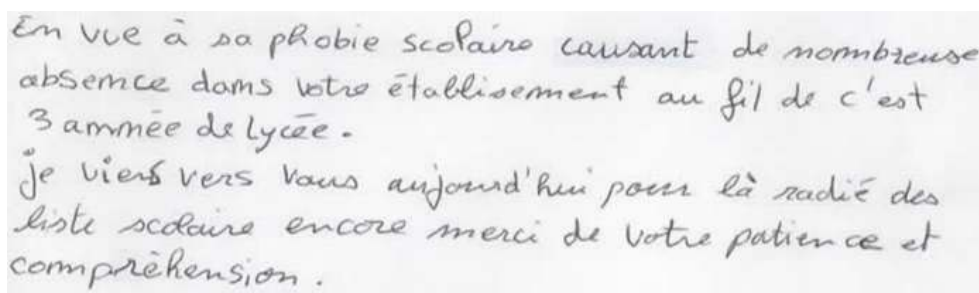 En vue à sa phobie scolaire causant de nombreuse
absence dans votre établisement au fil de c'est
3 année de lycée.
je viens vers vous aujourd'hui pour là radié des
liste scolaire encore merci de votre patience et
compréhension.